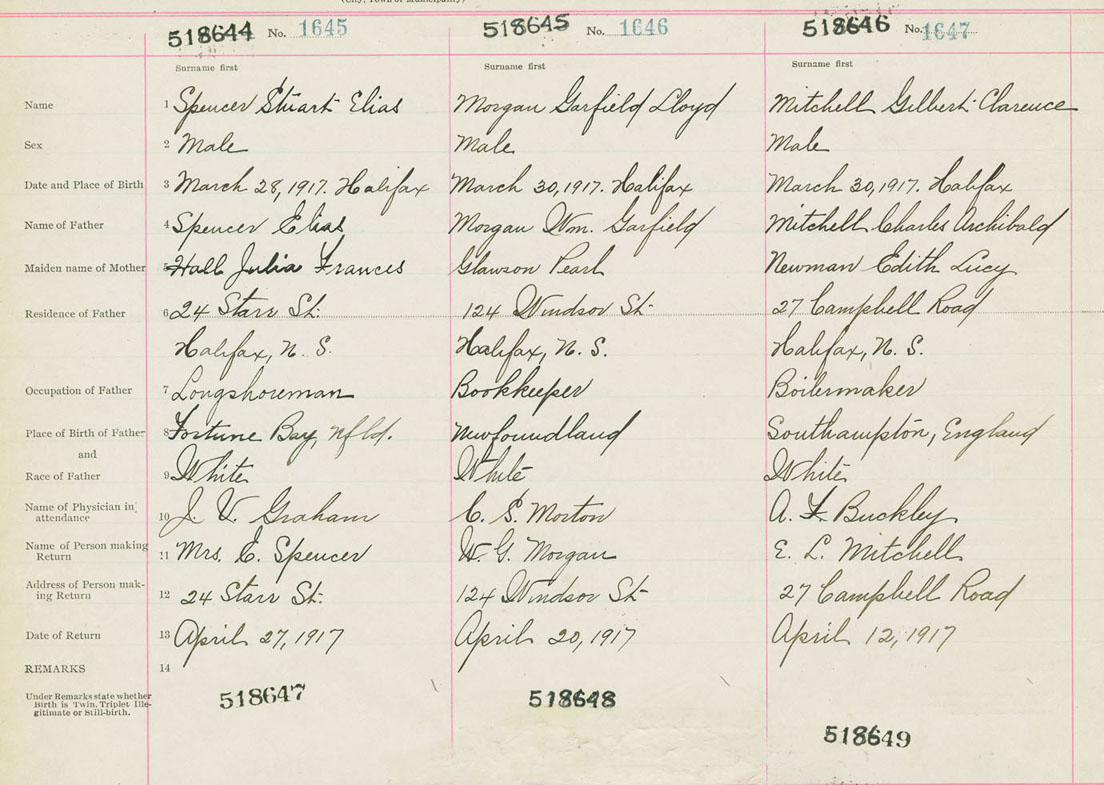 (City, Town or Municipality)
518644 No. 1645 518645 No. 1646 518646 No. 1647
Surname first Surname first Surname first
Name 1 Spencer Stuart Elias Morgan Garfield Lloyd Mitchell Gilbert Clarence
Sex 2 Male Male Male
Date and Place of Birth 3 March 28, 1917. Halifax March 30, 1917. Halifax March 30, 1917. Halifax
Name of Father 4 Spencer Elias Morgan Wm. Garfield Mitchell Charles Archibald
Maiden name of Mother 5 Hall Julia Frances Glawson Pearl Newman Edith Lucy
Residence of Father 6 24 Starr St. 124 Windsor St. 27 Campbell Road
Halifax, N. S. Halifax, N. S. Halifax, N. S.
Occupation of Father 7 Longshoreman Bookkeeper Boilermaker
Place of Birth of Father 8 Fortune Bay, Nfld. Newfoundland Southampton, England
and
Race of Father 9 White White White
Name of Physician in attendance 10 J. V. Graham C. S. Morton A. F. Buckley
Name of Person making Return 11 Mrs. E. Spencer W. G. Morgan E. L. Mitchell
Address of Person making Return 12 24 Starr St. 124 Windsor St 27 Campbell Road
Date of Return 13 April 27, 1917 April 20, 1917 April 12, 1917
REMARKS 14
Under Remarks state whether
Birth is Twin, Triplet Ille-
gitimate or Still-birth.
518647 518648
518649